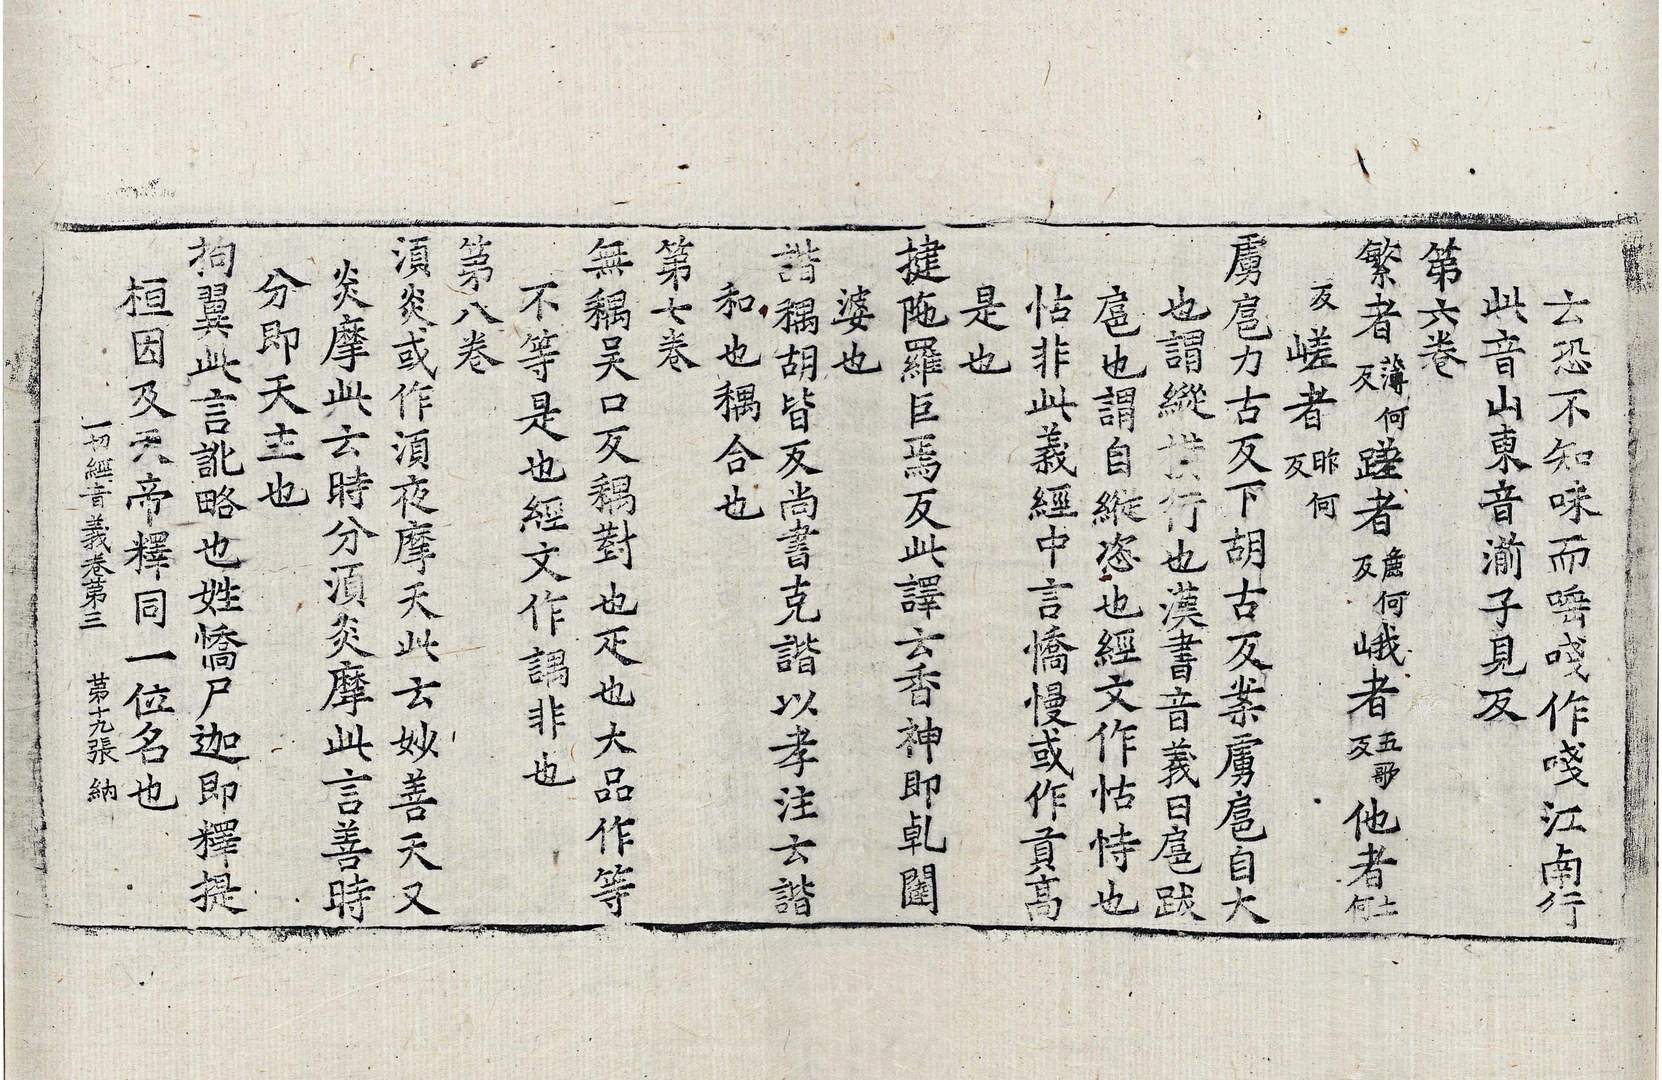 云恐不知味而唾咬作嘥江南行
此音山東音湔子見反
第六卷
繁者薄何反蹉者麁何反峨者五歌反他者土何
反嵯者昨何反
虜扈力古反下胡古反案虜扈自大
也謂縱橫行也漢書音義曰扈跋
扈也謂自縱恣也經文作怙恃也
怙非此義經中言憍慢或作貢高
是也
揵陁羅巨焉反此譯云香神即乹闥
婆也
諧耦胡皆反尚書克諧以孝注云諧
和也耦合也
第七卷
無耦吴口反耦對也疋也大品作等
不等是也經文作謂非也
第八卷
湏炎或作湏夜摩天此云妙善天又
炎摩此云時分湏炎摩此言善時
分即天主也
拘翼此言訛略也姓憍尸迦即釋提
桓因及天帝釋同一位名也
一切經音義卷第三 第十九張 納